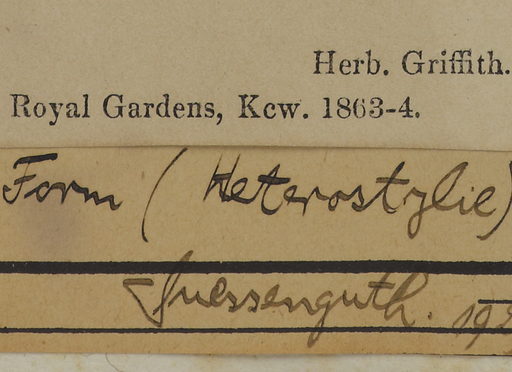 Herb. Griffith.
Royal Gardens, Kew. 1863-4.
Form (Heterostylie)
Suessenguth. 19